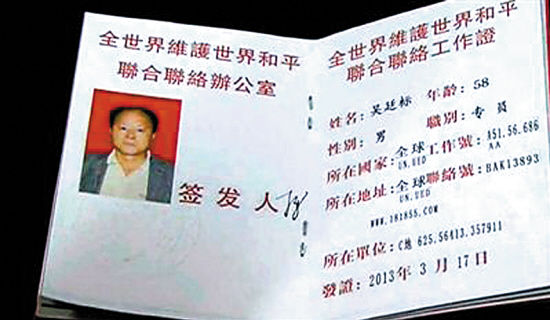 全世界維護世界和平
聯合聯絡辦公室
签发人
全世界維護世界和平
聯合聯絡工作證
姓名:吴廷标 年龄:58
性别:男 職别:专員
所在國家:全球工作號:A51.56.686
UN.UED AA
所在地址:全球聯絡號:BAK13893
UN.UED
WWW.181855.COM
所在單位:C地 625.56413.357911
發證:2013年3月17日